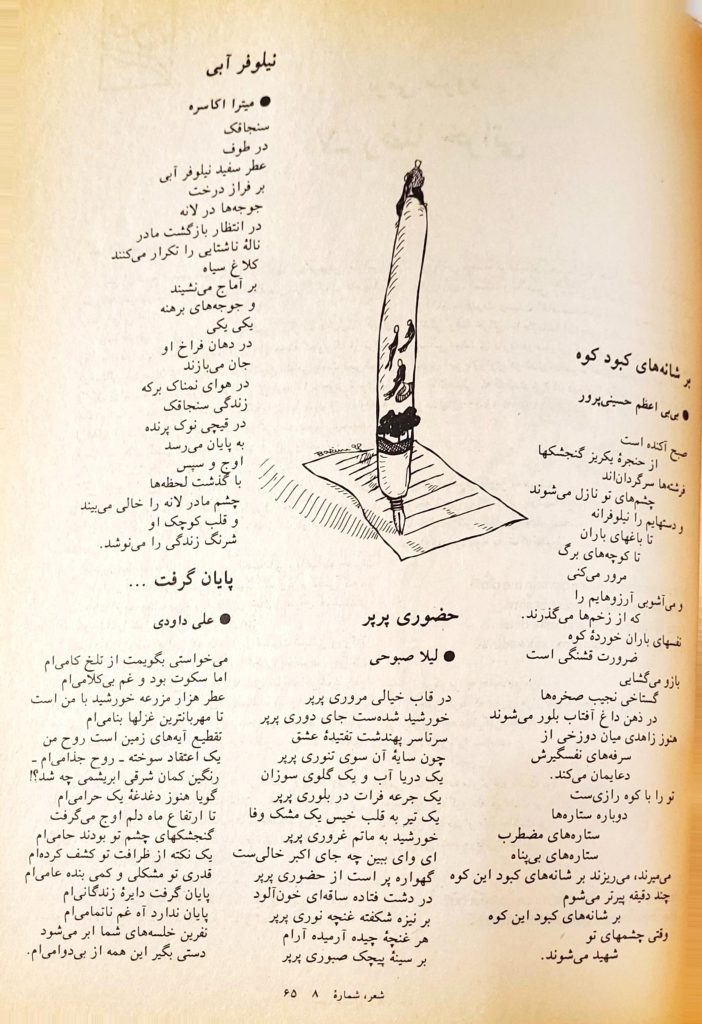 بر شانه‌های کبود کوه
● بی‌بی اعظم حسینی‌پرور
صبح آکنده است
از حنجرهٔ یکریز گنجشکها
فرشته‌ها سرگردان‌اند
چشم‌های تو نازل می‌شوند
و دستهایم را نیلوفرانه
تا باغهای باران
تا کوچه‌های برگ
مرور می‌کنی
و می‌آشوبی آرزوهایم را
که از زخم‌ها می‌گذرند.
نفسهای باران خوردهٔ کوه
ضرورت قشنگی است
بازو می‌گشایی
گستاخی نجیب صخره‌ها
در ذهن داغ آفتاب بلور می‌شوند
هنوز زاهدی میان دوزخی از
سرفه‌های نفسگیرش
دعایمان می‌کند.
تو را با کوه رازی‌ست
دوباره ستاره‌ها
ستاره‌های مضطرب
ستاره‌های بی‌پناه
می‌میرند، می‌ریزند بر شانه‌های کبود این کوه
چند دقیقه پیرتر می‌شوم
بر شانه‌های کبود این کوه
وقتی چشمهای تو
شهید می‌شوند.
حضوری پرپر
● لیلا صبوحی
در قاب خیالی مروری پرپر
خورشید شده‌ست جای دوری پرپر
سرتاسر پهندشت تفتیدهٔ عشق
چون سایهٔ آن سوی تنوری پرپر
یک دریا آب و یک گلوی سوزان
یک جرعه فرات در بلوری پرپر
یک تیر به قلب خیس یک مشک وفا
خورشید به ماتم غروری پرپر
ای وای ببین چه جای اکبر خالی‌ست
گهواره پر است از حضوری پرپر
در دشت فتاده ساقه‌ای خون‌آلود
بر نیزه شکفته غنچه نوری پرپر
هر غنچهٔ چیده آرمیده آرام
بر سینهٔ پیچک صبوری پرپر
نیلوفر آبی
● میترا اکاسره
سنجاقک
در طوف
عطر سفید نیلوفر آبی
بر فراز درخت
جوجه‌ها در لانه
در انتظار بازگشت مادر
نالهٔ ناشتایی را تکرار می‌کنند
کلاغ سیاه
بر آماج می‌نشیند
و جوجه‌های برهنه
یکی یکی
در دهان فراخ او
جان می‌بازند
در هوای نمناک برکه
زندگی سنجاقک
در قیچی نوک پرنده
به پایان می‌رسد
اوج و سپس
با گذشت لحظه‌ها
چشم مادر لانه را خالی می‌بیند
و قلب کوچک او
شرنگ زندگی را می‌نوشد.
پایان گرفت ...
● علی داودی
می‌خواستی بگویمت از تلخ کامی‌ام
اما سکوت بود و غم بی‌کلامی‌ام
عطر هزار مزرعه خورشید با من است
تا مهربانترین غزلها بنامی‌ام
تقطیع آیه‌های زمین است روح من
یک اعتقاد سوخته ـ روح جذامی‌ام ـ
رنگین کمان شرقی ابریشمی چه شد؟!
گویا هنوز دغدغهٔ یک حرامی‌ام
تا ارتفاع ماه دلم اوج می‌گرفت
گنجشکهای چشم تو بودند حامی‌ام
یک نکته از ظرافت تو کشف کرده‌ام
قدری تو مشکلی و کمی بنده عامی‌ام
پایان گرفت دایرهٔ زندگانی‌ام
پایان ندارد آه غم ناتمامی‌ام
نفرین خلسه‌های شما ابر می‌شود
دستی بگیر این همه از بی‌دوامی‌ام.
شعر، شمارهٔ ۸ ۶۵